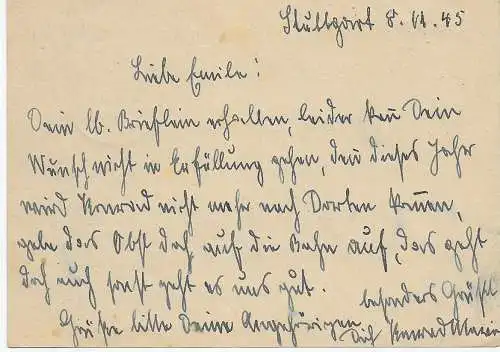 Stuttgart 8.11.45
Liebe Emile!
Dein lb. Brieflein erhalten, leider kan̄ Dein
Wunsch nicht in Erfüllung gehen, den̄ dieses Jahr
wird Konrad nicht mehr nach Dorten kom̄en,
gebe das Obst doch auf die Bahn auf, das geht
doch auch sonst geht es uns gut.
besonders Grüßt
Grüße bitte Deine Angehörigen. Dich Konrad Marie